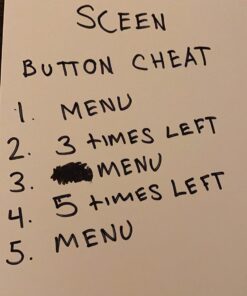 SCEEN
BUTTON CHEAT
1. MENU
2. 3 TIMES LEFT
3. MENU
4. 5 TIMES LEFT
5. MENU